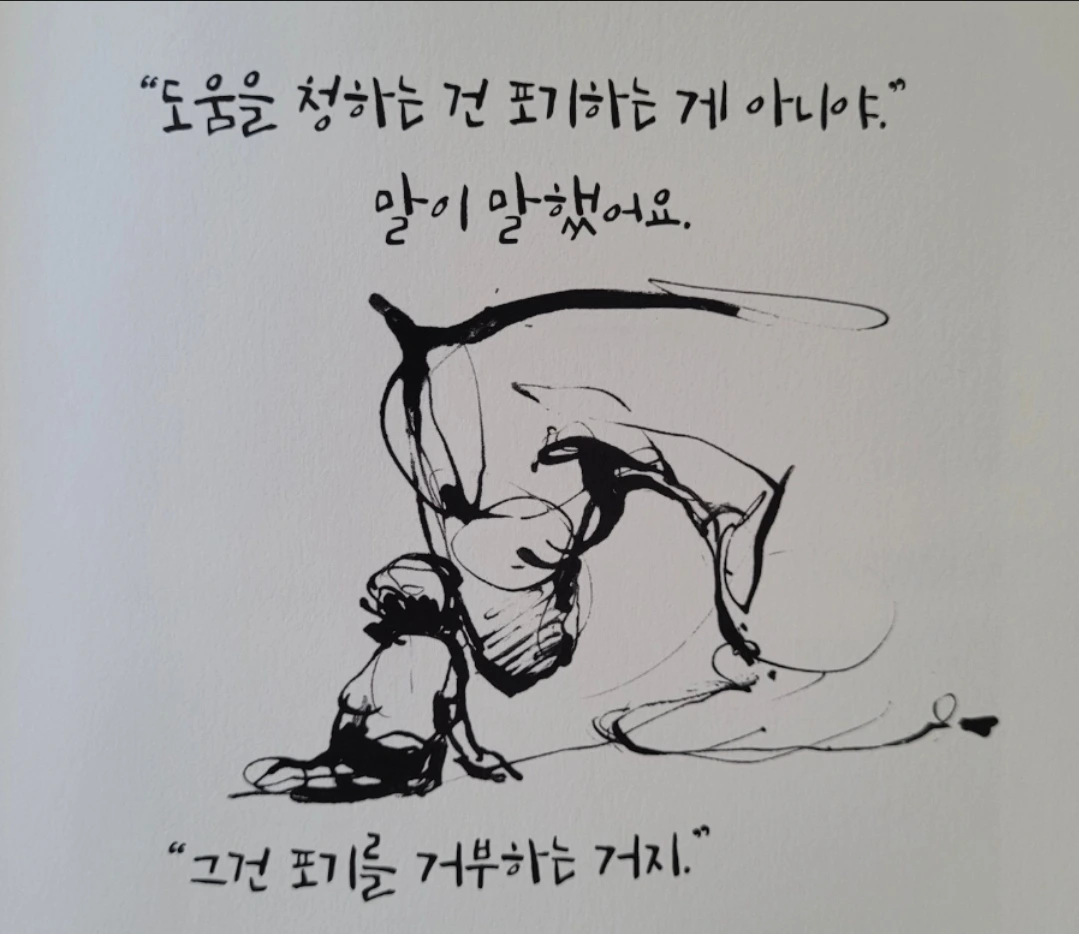 “도움을 청하는 건 포기하는 게 아니야.”
말이 말했어요.
“그건 포기를 거부하는 거지.”